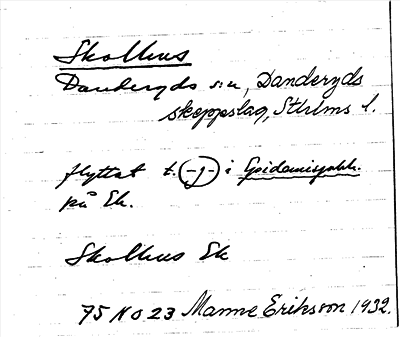 Skolhus
Danderyds sn, Danderyds
skeppslag, Sthlms l.
flyttat t. -j- i
på Ek.
Skolhus Ek
75 NO 23 Manne Eriksson 1932.